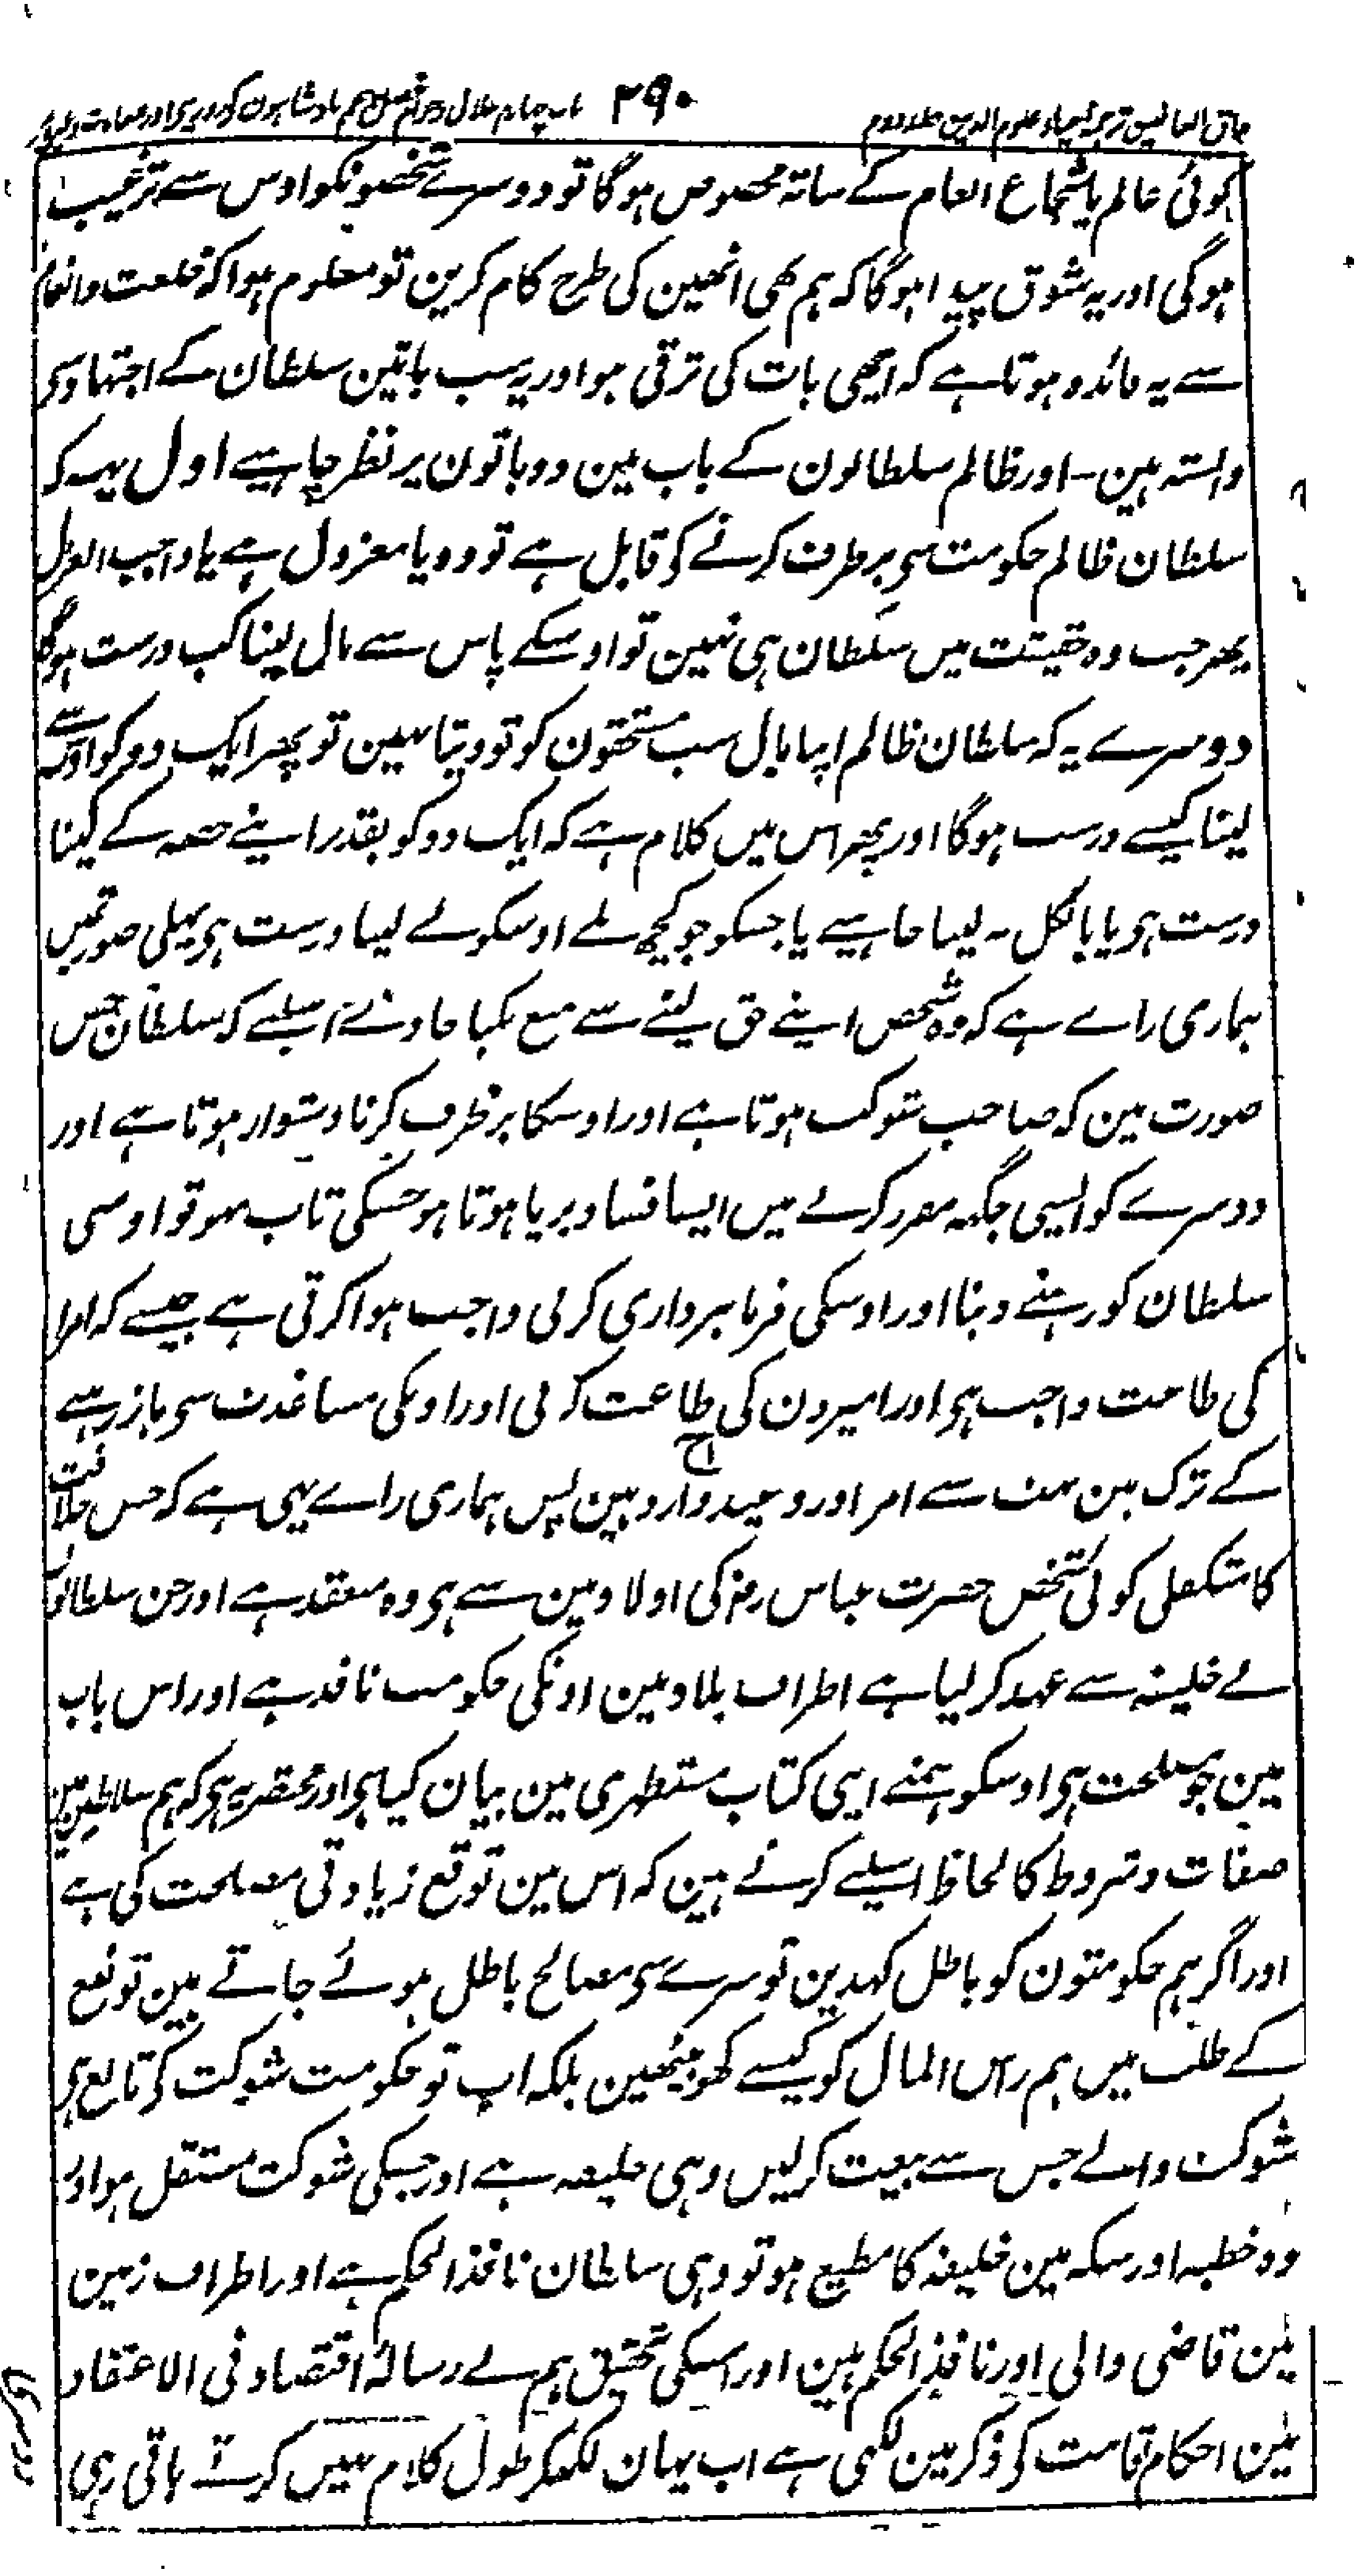 مذاق العارفین ترجمہ احیاء علوم الدین جلد دوم ۲۹۰ باب چہارم حلال و حرام فصل
کوئی عالم یا شجاع انعام کے ساتہ مخصوص ہوگا تو دوسرے شخصونکو اوس سے ترغیب
ہوگی اور یہ شوق پیدا ہوگا کہ ہم بھی انھین کی طرح کام کرین تو معلوم ہوا کہ خلعت و انعام
سے یہ فائدہ ہوتا ہے کہ اچھی بات کی ترقی ہو اور یہ سب باتین سلطان کے اجتہاد سی
وابستہ ہین - اور ظالم سلطانون کے باب مین دو باتون پر نظر چاہیے اول یہہ کہ
سلطان ظالم حکومت سی برطرف کرنے کو قابل ہے تو وہ یا معزول ہے یا واجب العزل
پھر جب وہ حقیقت میں سلطان ہی نہین تو اوسکے پاس سے مال لینا کب درست ہوگا
دوسرے یہ کہ سلطان ظالم اپنا مال سب مستحقون کو تو دیتا نہین تو پھر ایک دو کو اوس سے
لینا کیسے درست ہوگا اور پھر اس میں کلام ہے کہ ایک دو کو بقدر اپنے حصہ کے لینا
درست ہی یا بالکل نہ لینا چاہیے یا جسکو جو کچھ ملے اوسکو لے لینا درست ہی پہلی صورتمیں
ہماری راے ہے کہ وہ شخص اپنے حق لینے سے منع نکیا جاوے اسلیے کہ سلطان جس
صورت مین کہ صاحب شوکت ہوتا ہے اور اوسکا برطرف کرنا دشوار ہوتا ہے اور
دوسرے کو ایسی جگہہ مقرر کرنے میں ایسا فساد برپا ہوتا ہو جسکی تاب نہو تو اوسی
سلطان کو رہنے دینا اور اوسکی فرمانبرداری کرنی واجب ہوا کرتی ہے جیسے کہ امرا
کی طاعت واجب ہی اور امیرون کی طاعت کرنی اور اونکی مساعدت سی باز رہنے
کے ترک مین بہت سے امر اور وعید وارد ہین پس ہماری راے یہی ہے کہ جس خلافت
کا متکفل کوئی شخص حضرت عباس رضؓ کی اولاد مین سے ہی وہ منعقد ہے اور جن سلطانون
نے خلیفہ سے عہد کر لیا ہے اطراف بلاد مین اونکی حکومت نافذ ہے اور اس باب
مین جو مصلحت ہی اوسکو ہمنے اپنی کتاب مستظہری مین بیان کیا ہی اور مختصر یہ ہی کہ ہم سلاطین مین
صفات و شروط کا لحاظ اسلیے کرتے ہین کہ اس مین توقع زیادتی مصلحت کی ہے
اور اگر ہم حکومتون کو باطل کہدین تو سرے سی مصالح باطل ہوئے جاتے ہین تو نفع
کے طلب میں ہم راس المال کو کیسے کھو بیٹھین بلکہ اب تو حکومت شوکت کو تابع ہی
شوکت والے جس سے بیعت کرلیں وہی خلیفہ ہے اور جسکی شوکت مستقل ہو اور
وہ خطبہ اور سکہ مین خلیفہ کا مطیع ہو تو وہی سلطان نافذ الحکم ہے اور اطراف زمین
مین قاضی والی اور نافذ الحکم ہین اور اسکی تحقیق ہم نے رسالۂ اقتصاد فی الاعتقاد
مین احکام امامت کو ذکر مین لکھی ہے اب یہان لکھکر طول کلام نہیں کرتے باقی رہی